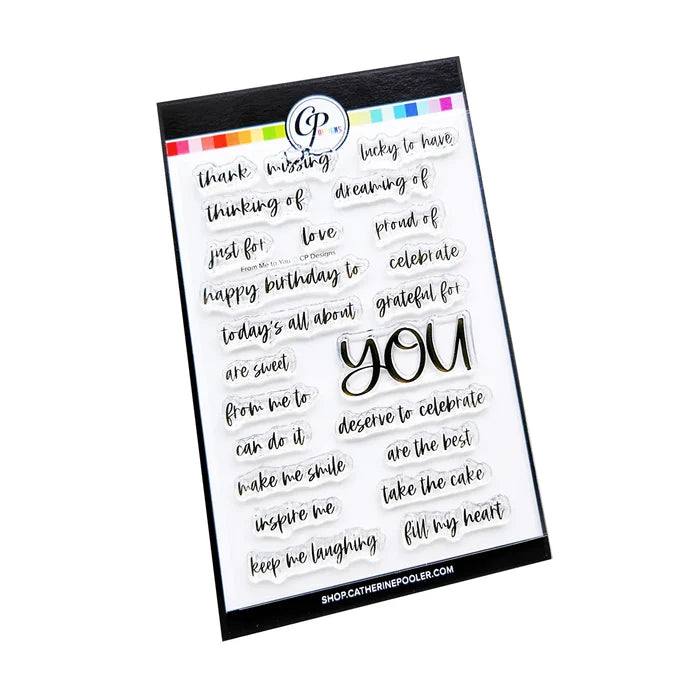 CP
DESIGNS
thank
missing
lucky to have
thinking of
dreaming of
just for
love
proud of
From Me to You CP Designs
celebrate
happy birthday to
grateful for
today's all about
YOU
are sweet
from me to
deserve to celebrate
can do it
are the best
make me smile
take the cake
inspire me
fill my heart
keep me laughing
SHOP.CATHERINEPOOLER.COM